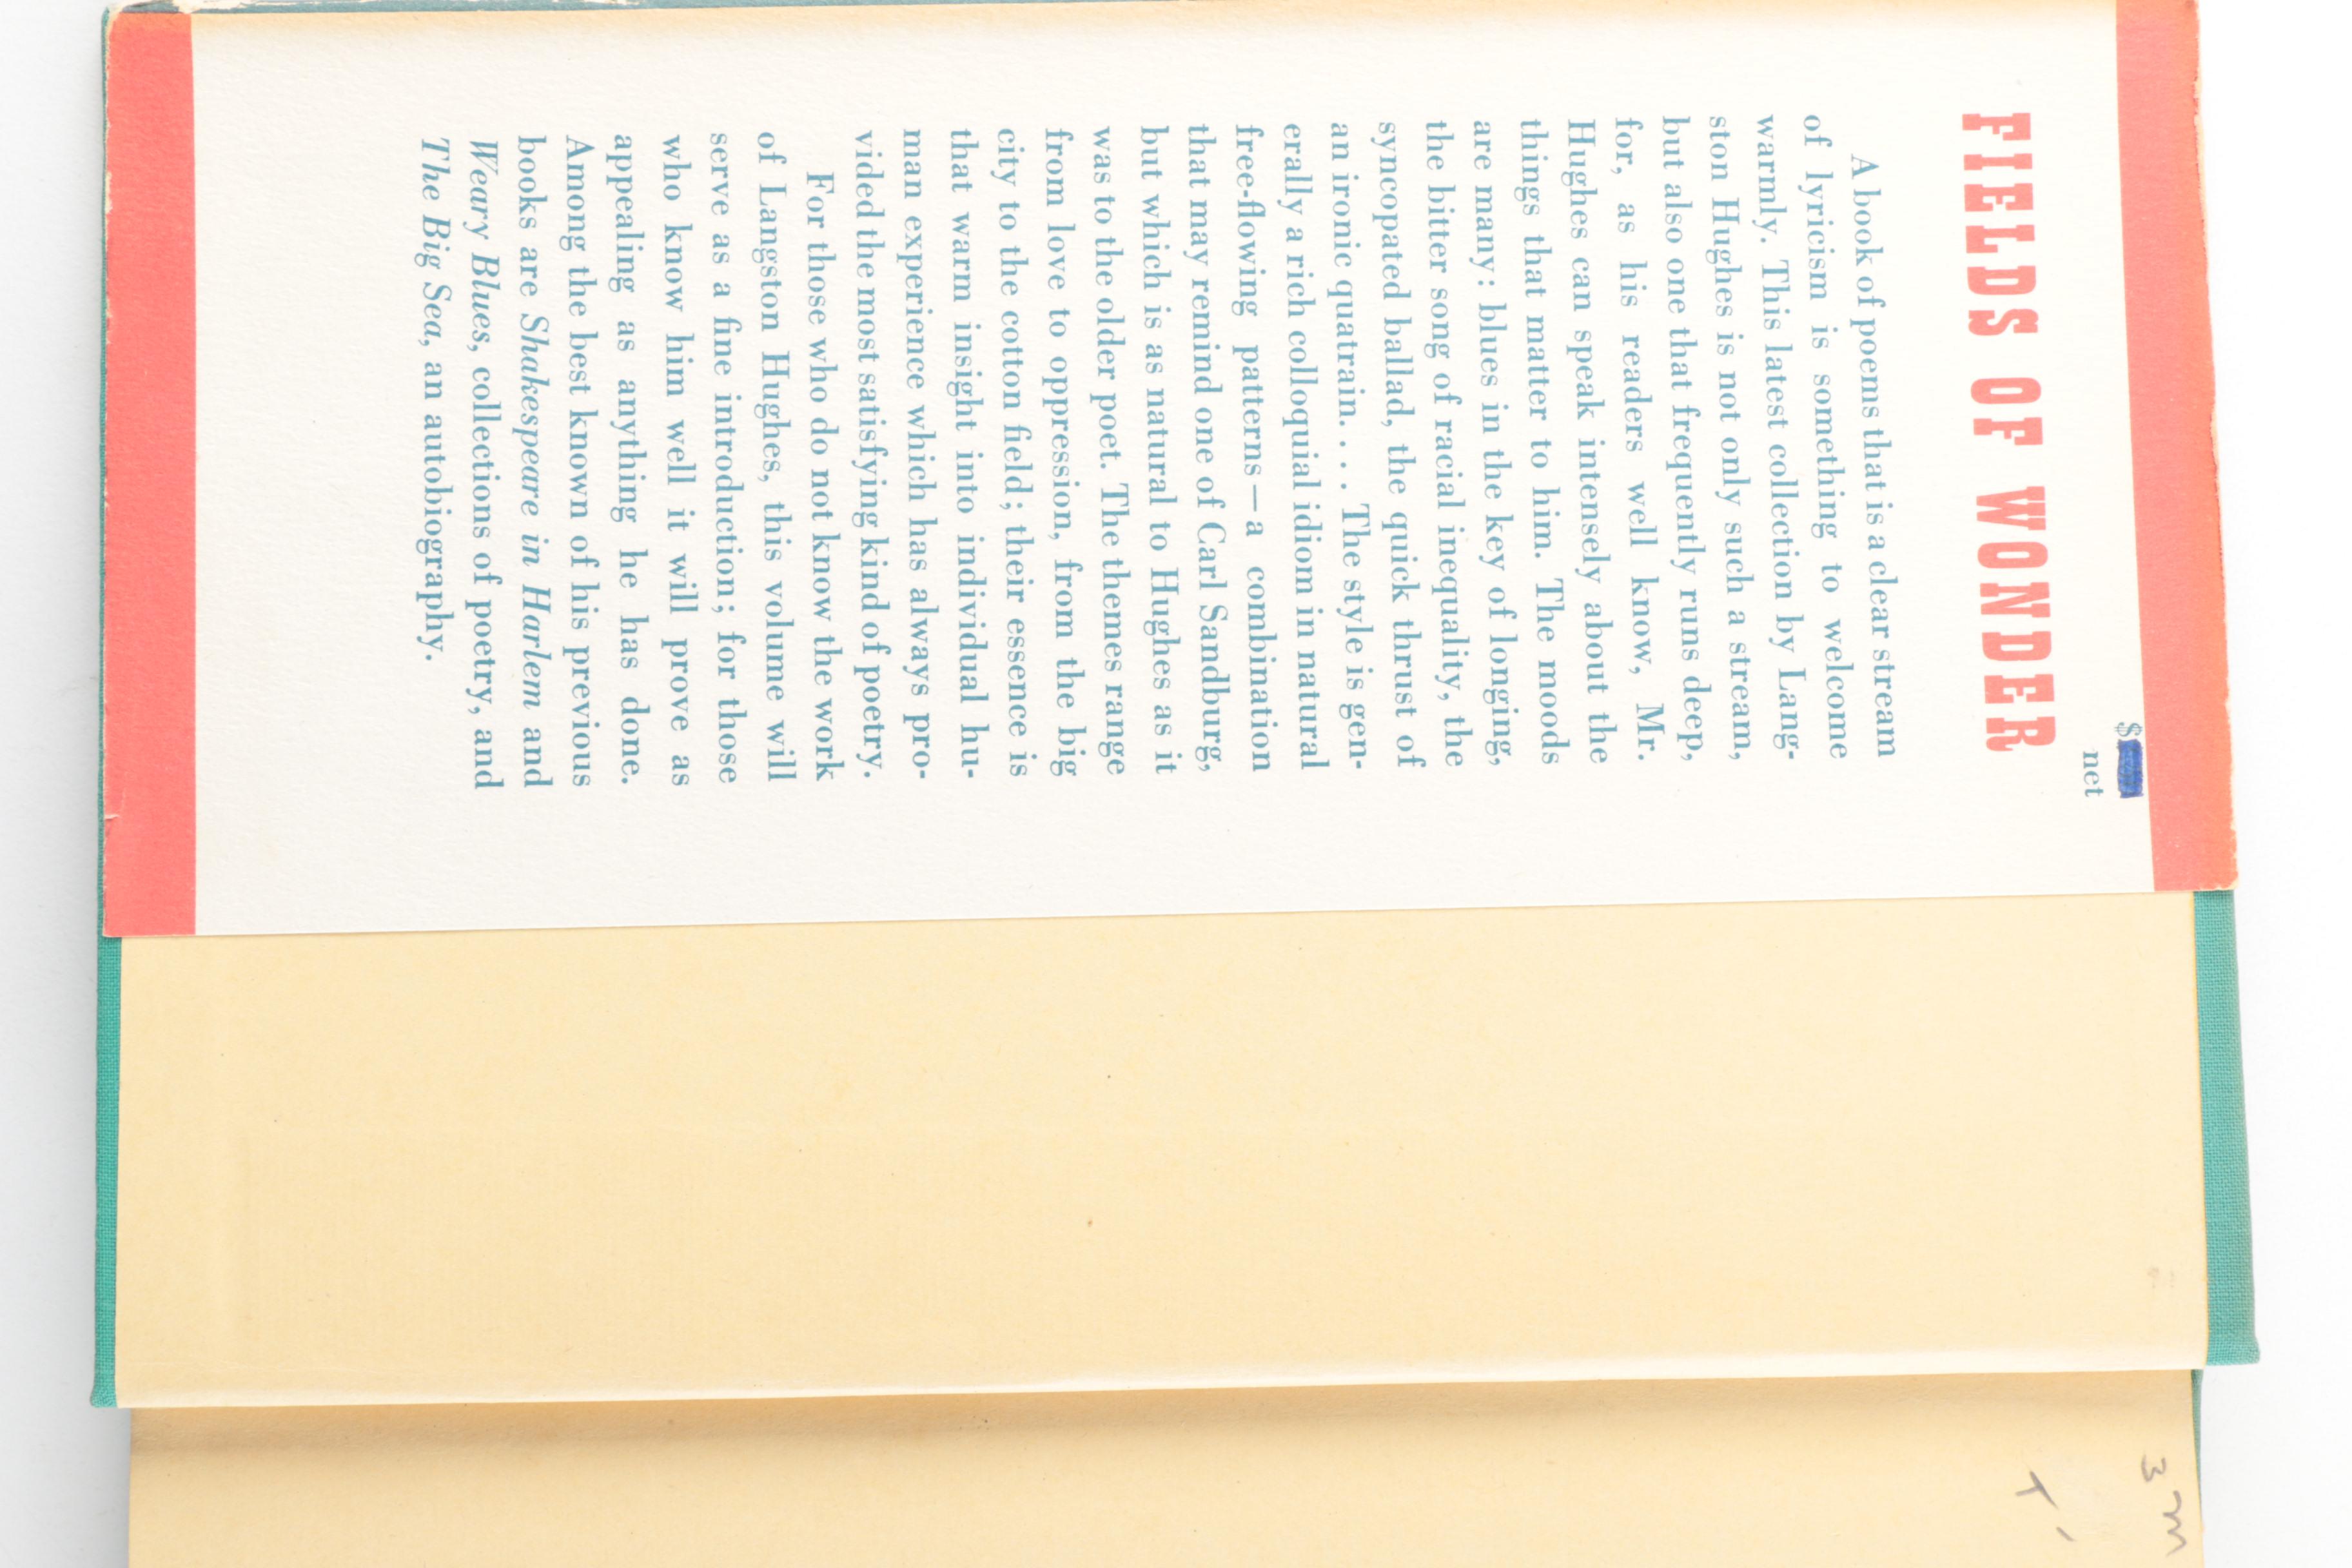 $
net
FIELDS OF WONDER
A book of poems that is a clear stream
of lyricism is something to welcome
warmly. This latest collection by Lang-
ston Hughes is not only such a stream,
but also one that frequently runs deep,
for, as his readers well know, Mr.
Hughes can speak intensely about the
things that matter to him. The moods
are many: blues in the key of longing,
the bitter song of racial inequality, the
syncopated ballad, the quick thrust of
an ironic quatrain. . . . The style is gen-
erally a rich colloquial idiom in natural
free-flowing patterns—a combination
that may remind one of Carl Sandburg,
but which is as natural to Hughes as it
was to the older poet. The themes range
from love to oppression, from the big
city to the cotton field; their essence is
that warm insight into individual hu-
man experience which has always pro-
vided the most satisfying kind of poetry.
For those who do not know the work
of Langston Hughes, this volume will
serve as a fine introduction; for those
who know him well it will prove as
appealing as anything he has done.
Among the best known of his previous
books are Shakespeare in Harlem and
Weary Blues, collections of poetry, and
The Big Sea, an autobiography.